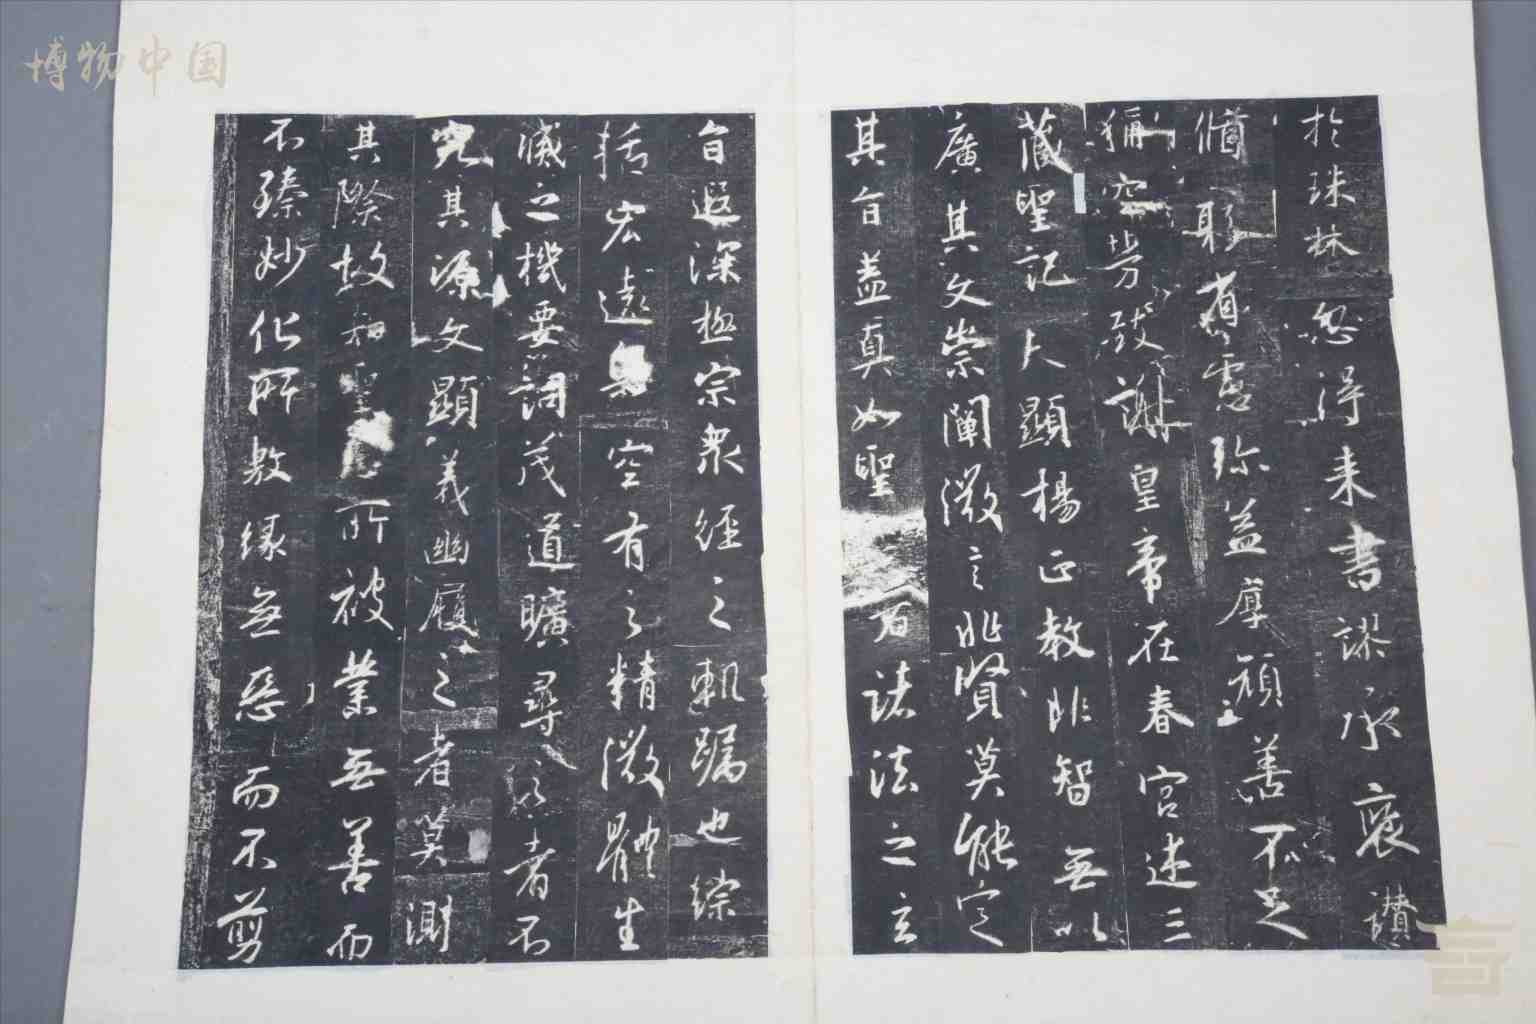 博物中国
於珠林忽得来書謬承褒讃
循躬省慮弥益厚顔善不足
稱空勞致謝皇帝在春宮述三
藏聖記
夫顯楊正教非智無以
廣其文崇闡微言非賢莫能定
其旨盖真如聖者諸法之玄
旨遐深極宗衆經之軌躅也綜
括宏遠奥空有之精微體生
滅之機要詞茂道曠尋之者不
究其源文顯義幽履之者莫測
其際故知聖慈所被業無善而
不臻妙化所敷緣無惡而不剪